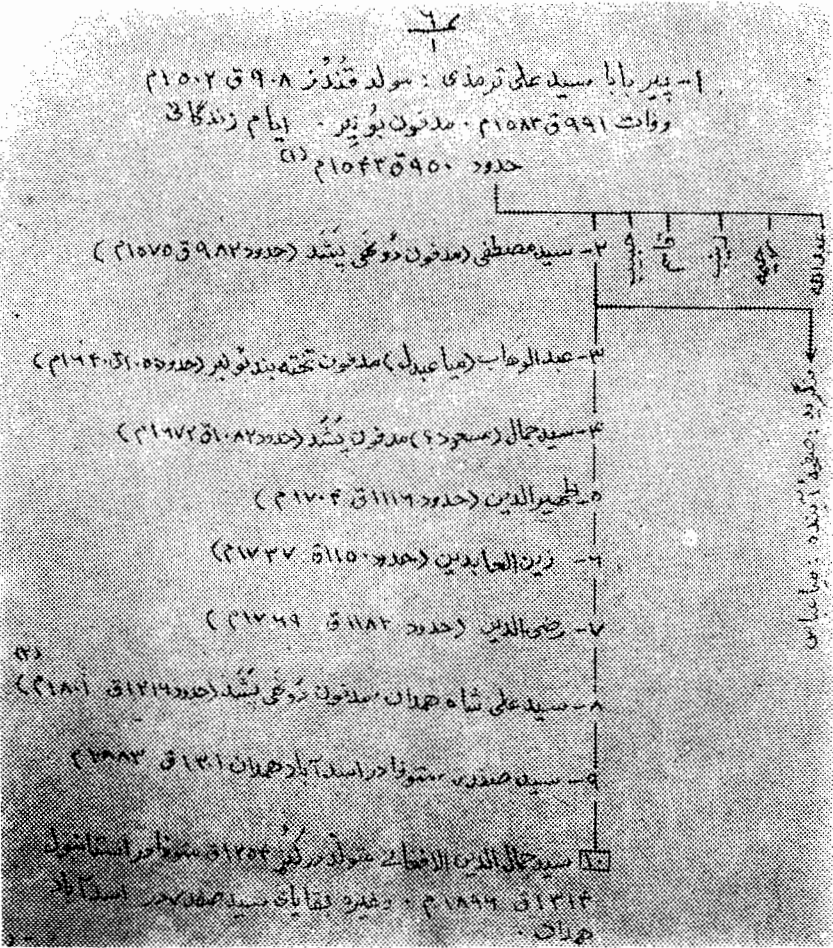 ۶
۱
۱- پیر بابا سید علی ترمذی : مولد قُندُز ۹۰۸ ق ۱۵۰۲م
وفات ۹۹۱ق ۱۵۸۳م . مدفون بونیر . ایام زندگانی
حدود ۹۵۰ق ۱۵۴۳م (۱)
عبدالله
۲- سید مصطفی (مدفون دُونَّحی پَشَد (حدود ۹۸۲ق ۱۵۷۵م)
۳- عبدالوهاب (میا عبدل) مدفون تخته بند بونیر (حدود
۴- سید جمال (مسعود؟) مدفون پَشَد (حدود ۱۰۸۲ق ۱۶۷۲م)
۵- ظهیرالدین (حدود ۱۱۱۶ق ۱۷۰۴م)
۶- زین العابدین (حدود ۱۱۵۰ق ۱۷۳۷م)
۷- رضی الدین (حدود ۱۱۸۳ق ۱۷۶۹م)
۸- سید علی شاه همدان، مدفون پَشَد (حدود ۱۲۱۶ق ۱۸۰۱م) (۲)
۹- سید صفدر، متوفا در اسدآباد همدان ۱۳۰۱ق ۱۸۸۳م
۱۰ سید جمال الدین الافغانی متولد در کُنَر ۱۲۵۴ق متوفا در استانبول
۱۳۱۴ق ۱۸۹۶م . وغیره بقایای سید صفدر در اسدآباد
همدان .
صفحهٔ آینده : میا عباس